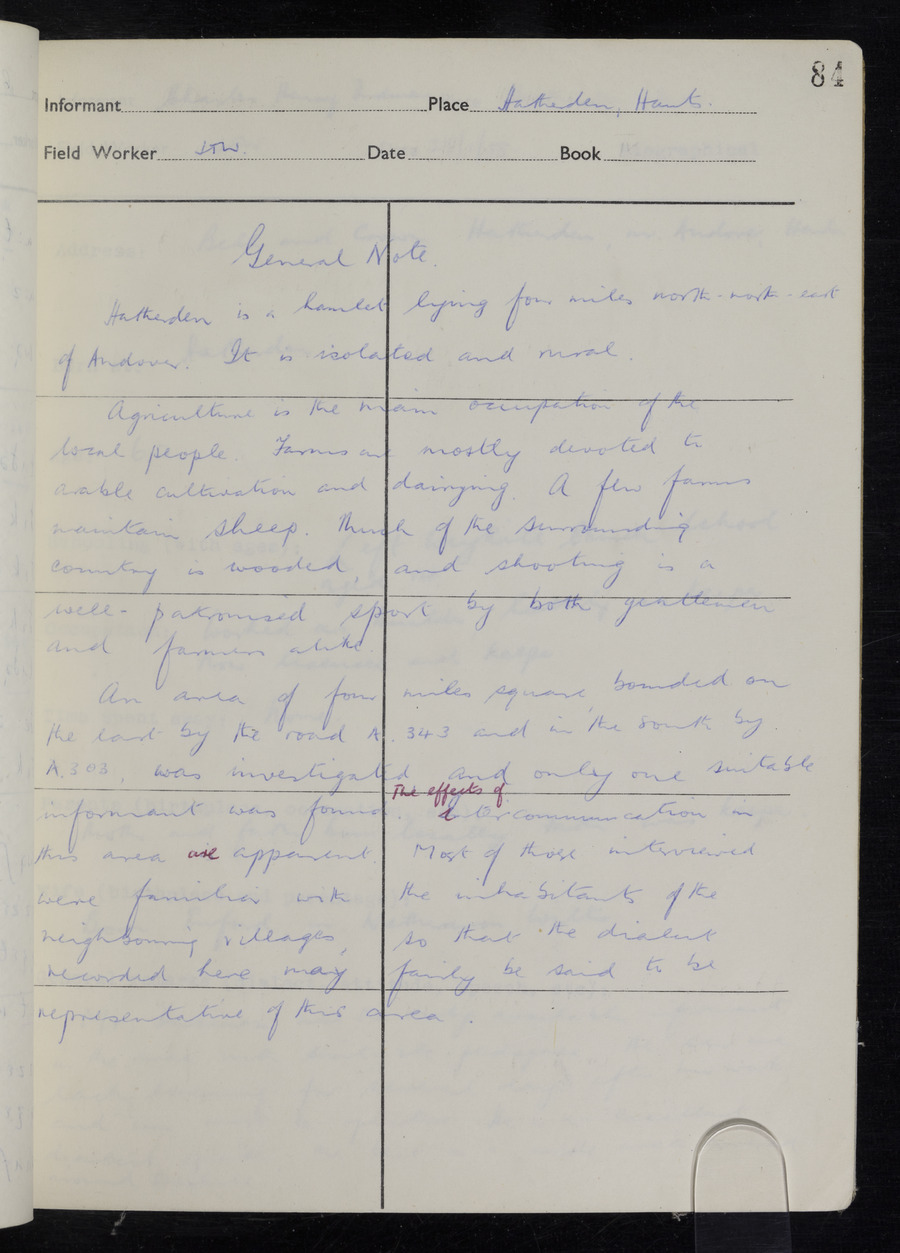 84
Informant Place Hatherden, Hants.
Field Worker JTW. Date Book
General Note.
Hatherden is a hamlet lying four miles north-north-east
of Andover. It is isolated and rural.
Agriculture is the main occupation of the
local people. Farms are mostly devoted to
arable cultivation and dairying. A few farms
maintain sheep. Much of the surrounding
country is wooded, and shooting is a
well-patronised sport by both gentlemen
and farmers alike.
An area of four miles square, bounded on
the east by the road A. 343 and in the south by
A.303, was investigated and only one suitable
The effects of
informant was found. intercommunication in
this area are apparent. Most of those interviewed
were familiar with the inhabitants of the
neighbouring villages, so that the dialect
recorded here may fairly be said to be
representative of this area.